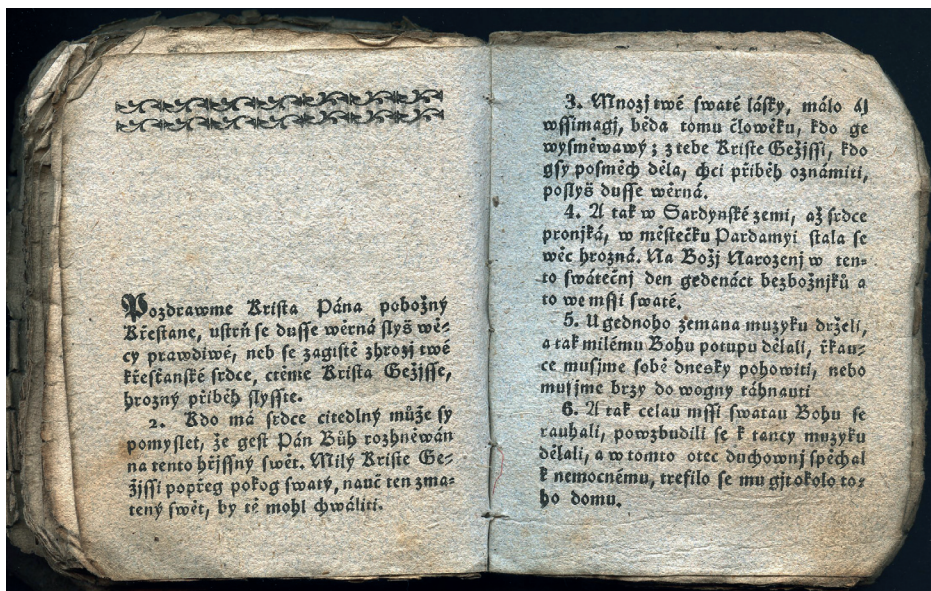 Pozdrawme Krista Pána pobožný
Křestane, ustrň se dusse wěrná slyš wě-
cy prawdiwé, neb se zagistě zhrozj twé
křesťanské srdce, ctěme Krista Gežjsse,
hrozný přjběh slyšte.
2. Kdo má srdce citedlný může sy
pomyslet, že gest Pán Bůh rozhněwán
na tento hřjssný swět. Milý Kriste Ge-
žjssi popřeg pokog swatý, nauč ten zma-
tený swět, by tě mohl chwáliti.
3. Mnozj twé swaté lásky, málo
wssimagj, běda tomu člowěku, kdo ge
wysměwawý; z tebe Kriste Gežjssi, kdo
gsy posměch děla, chci přiběh oznámiti,
poslyš dusse wěrná.
4. A tak w Sardynské zemi, až srdce
pronjká, w městečku Pardamyi stala se
wěc hrozná. Na Božj Narozenj w ten-
to swátečnj den gedenáct bezbožnjků a
to we mssi swaté.
5. U gednoho zemana muzyku drželi,
a tak milému Bohu potupu dělali, řkau-
ce musjme sobě dnesky pohowiti, nebo
musjme brzy do wogny táhnauti
6. A tak celau mssi swatau Bohu se
rauhali, powzbudili se k tancy muzyku
dělali, a w tomto otec duchownj spěchal
k nemocnému, trefilo se mu gjt okolo to-
ho domu.